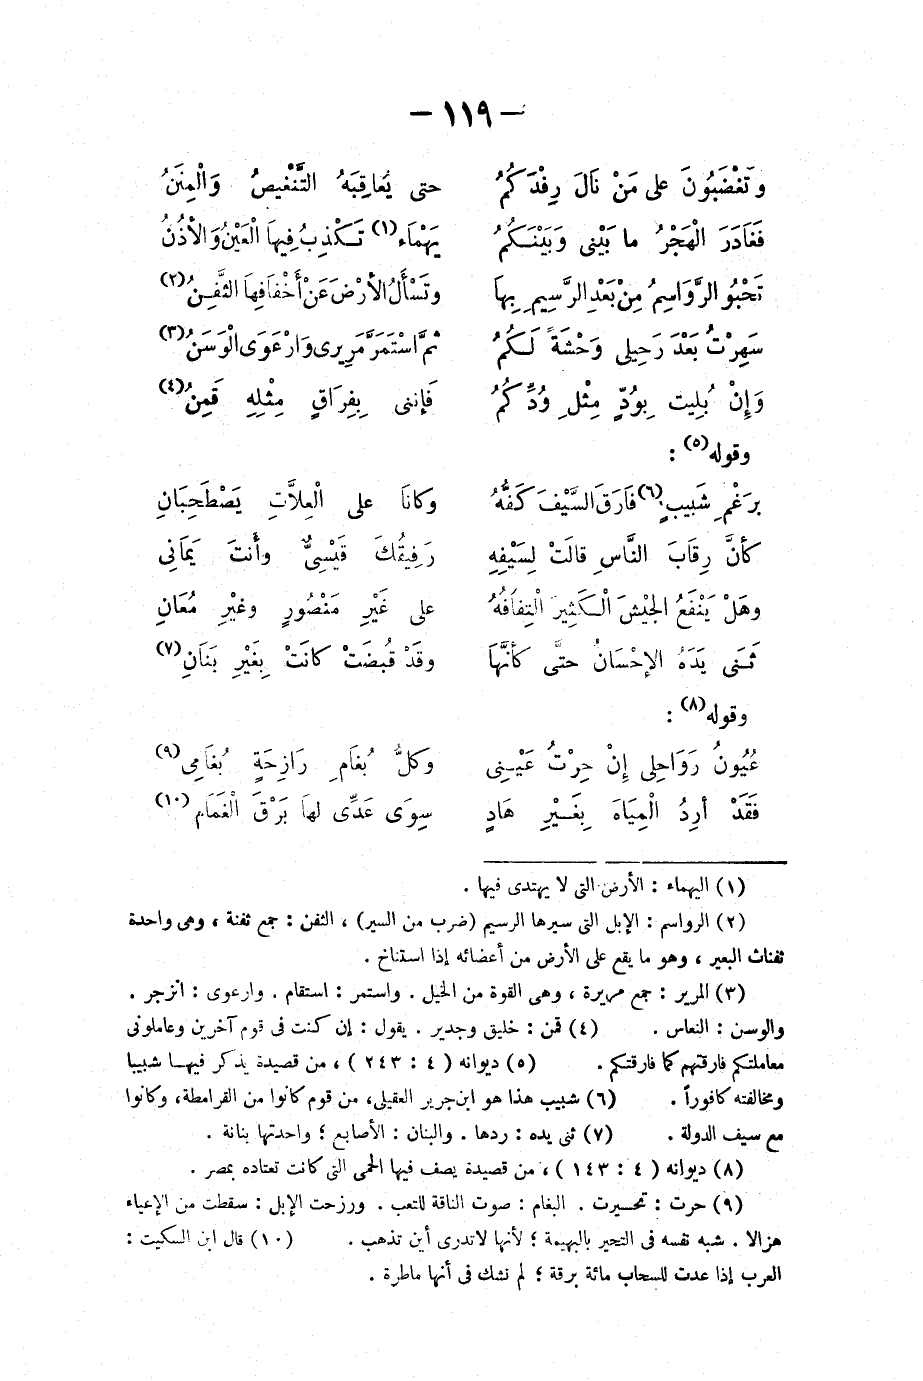 – ١١٩ –
وَتَغْضَبُونَ على مَنْ نَالَ رِفْدَكُمُ حتى يُعَاقِبَهُ التَّنْغِيصُ وَالْمِنَنُ
فَغَادَرَ الْهَجْرُ ما بَيْنِى وَبَيْنَكُمُ يَهْمَاءَ (١) تَكْذِبُ فِيهَا الْعَيْنُ وَالأُذُنُ
تَحْبُو الرَّوَاسِمُ مِنْ بَعْدِ الرَّسِيمِ بِهَا وتَسْأَلُ الأَرْضَ عَنْ أَخْفَافِهَا الثَّفِنُ (٢)
سَهِرْتُ بَعْدَ رَحِيلِى وَحْشَةً لَكُمُ ثُمَّ اسْتَمَرَّ مَرِيرِى وَارْعَوَى الْوَسَنُ (٣)
وَإِنْ بُلِيتُ بِوُدٍّ مِثْلِ وُدِّكُمُ فَإِننى بِفِرَاقٍ مِثْلِهِ قَمِنُ (٤)
وقوله (٥) :
بِرَغْمِ شَبِيبٍ (٦) فَارَقَ السَّيْفَ كَفُّهُ وكانَا على الْعِلاَّتِ يَصْطَحِبَانِ
كأنَّ رِقَابَ النَّاسِ قالَتْ لِسَيْفِهِ رَفِيقُكَ قَيْسِىٌّ وأنْتَ يَمَانِى
وهَلْ يَنْفَعُ الجَيْشَ الْكَثِيرَ الْتِفَافُهُ على غَيْرِ مَنْصُورٍ وغيْرِ مُعَانِ
ثَنَى يَدَهُ الإحْسَانُ حتَّى كأنَّهَا وقَدْ قُبِضَتْ كانَتْ بِغَيْرِ بَنَانِ (٧)
وقوله (٨) :
عُيُونُ رَوَاحِلِى إنْ حِرْتُ عَيْنِى وكلُّ بُغَامِ رَازِحَةٍ بُغَامِى (٩)
فَقَدْ أرِدُ الْمِيَاهَ بِغَيْرِ هَادٍ سِوَى عَدِّى لها بَرْقَ الْغَمَامِ (١٠)
(١) اليهماء : الأرض التى لا يهتدى فيها .
(٢) الرواسم : الإبل التى سيرها الرسيم (ضرب من السير) ، الثفن : جمع ثفنة ، وهى واحدة
ثفنات البعير ، وهو ما يقع على الأرض من أعضائه إذا استناخ .
(٣) المرير : جمع مريرة ، وهى القوة من الحبل . واستمر : استقام . وارعوى : انزجر .
والوسن : النعاس . (٤) قمن : خليق وجدير . يقول : إن كنت فى قوم آخرين وعاملونى
معاملتكم فارقتهم كما فارقتكم . (٥) ديوانه ( ٤ : ٢٤٣ ) ، من قصيدة يذكر فيها شبيبا
ومخالفته كافوراً . (٦) شبيب هذا هو ابن جرير العقيلى، من قوم كانوا من القرامطة، وكانوا
مع سيف الدولة . (٧) ثنى يده : ردها . والبنان : الأصابع ؛ واحدتها بنانة .
(٨) ديوانه ( ٤ : ١٤٣ ) ، من قصيدة يصف فيها الحمى التى كانت تعتاده بمصر .
(٩) حرت : تحيرت . البغام : صوت الناقة للتعب . ورزحت الإبل : سقطت من الإعياء
هزالا . شبه نفسه فى التحير بالبهيمة ؛ لأنها لا تدرى أين تذهب . (١٠) قال ابن السكيت :
العرب إذا عدت للسحاب مائة برقة ؛ لم نشك فى أنها ماطرة .